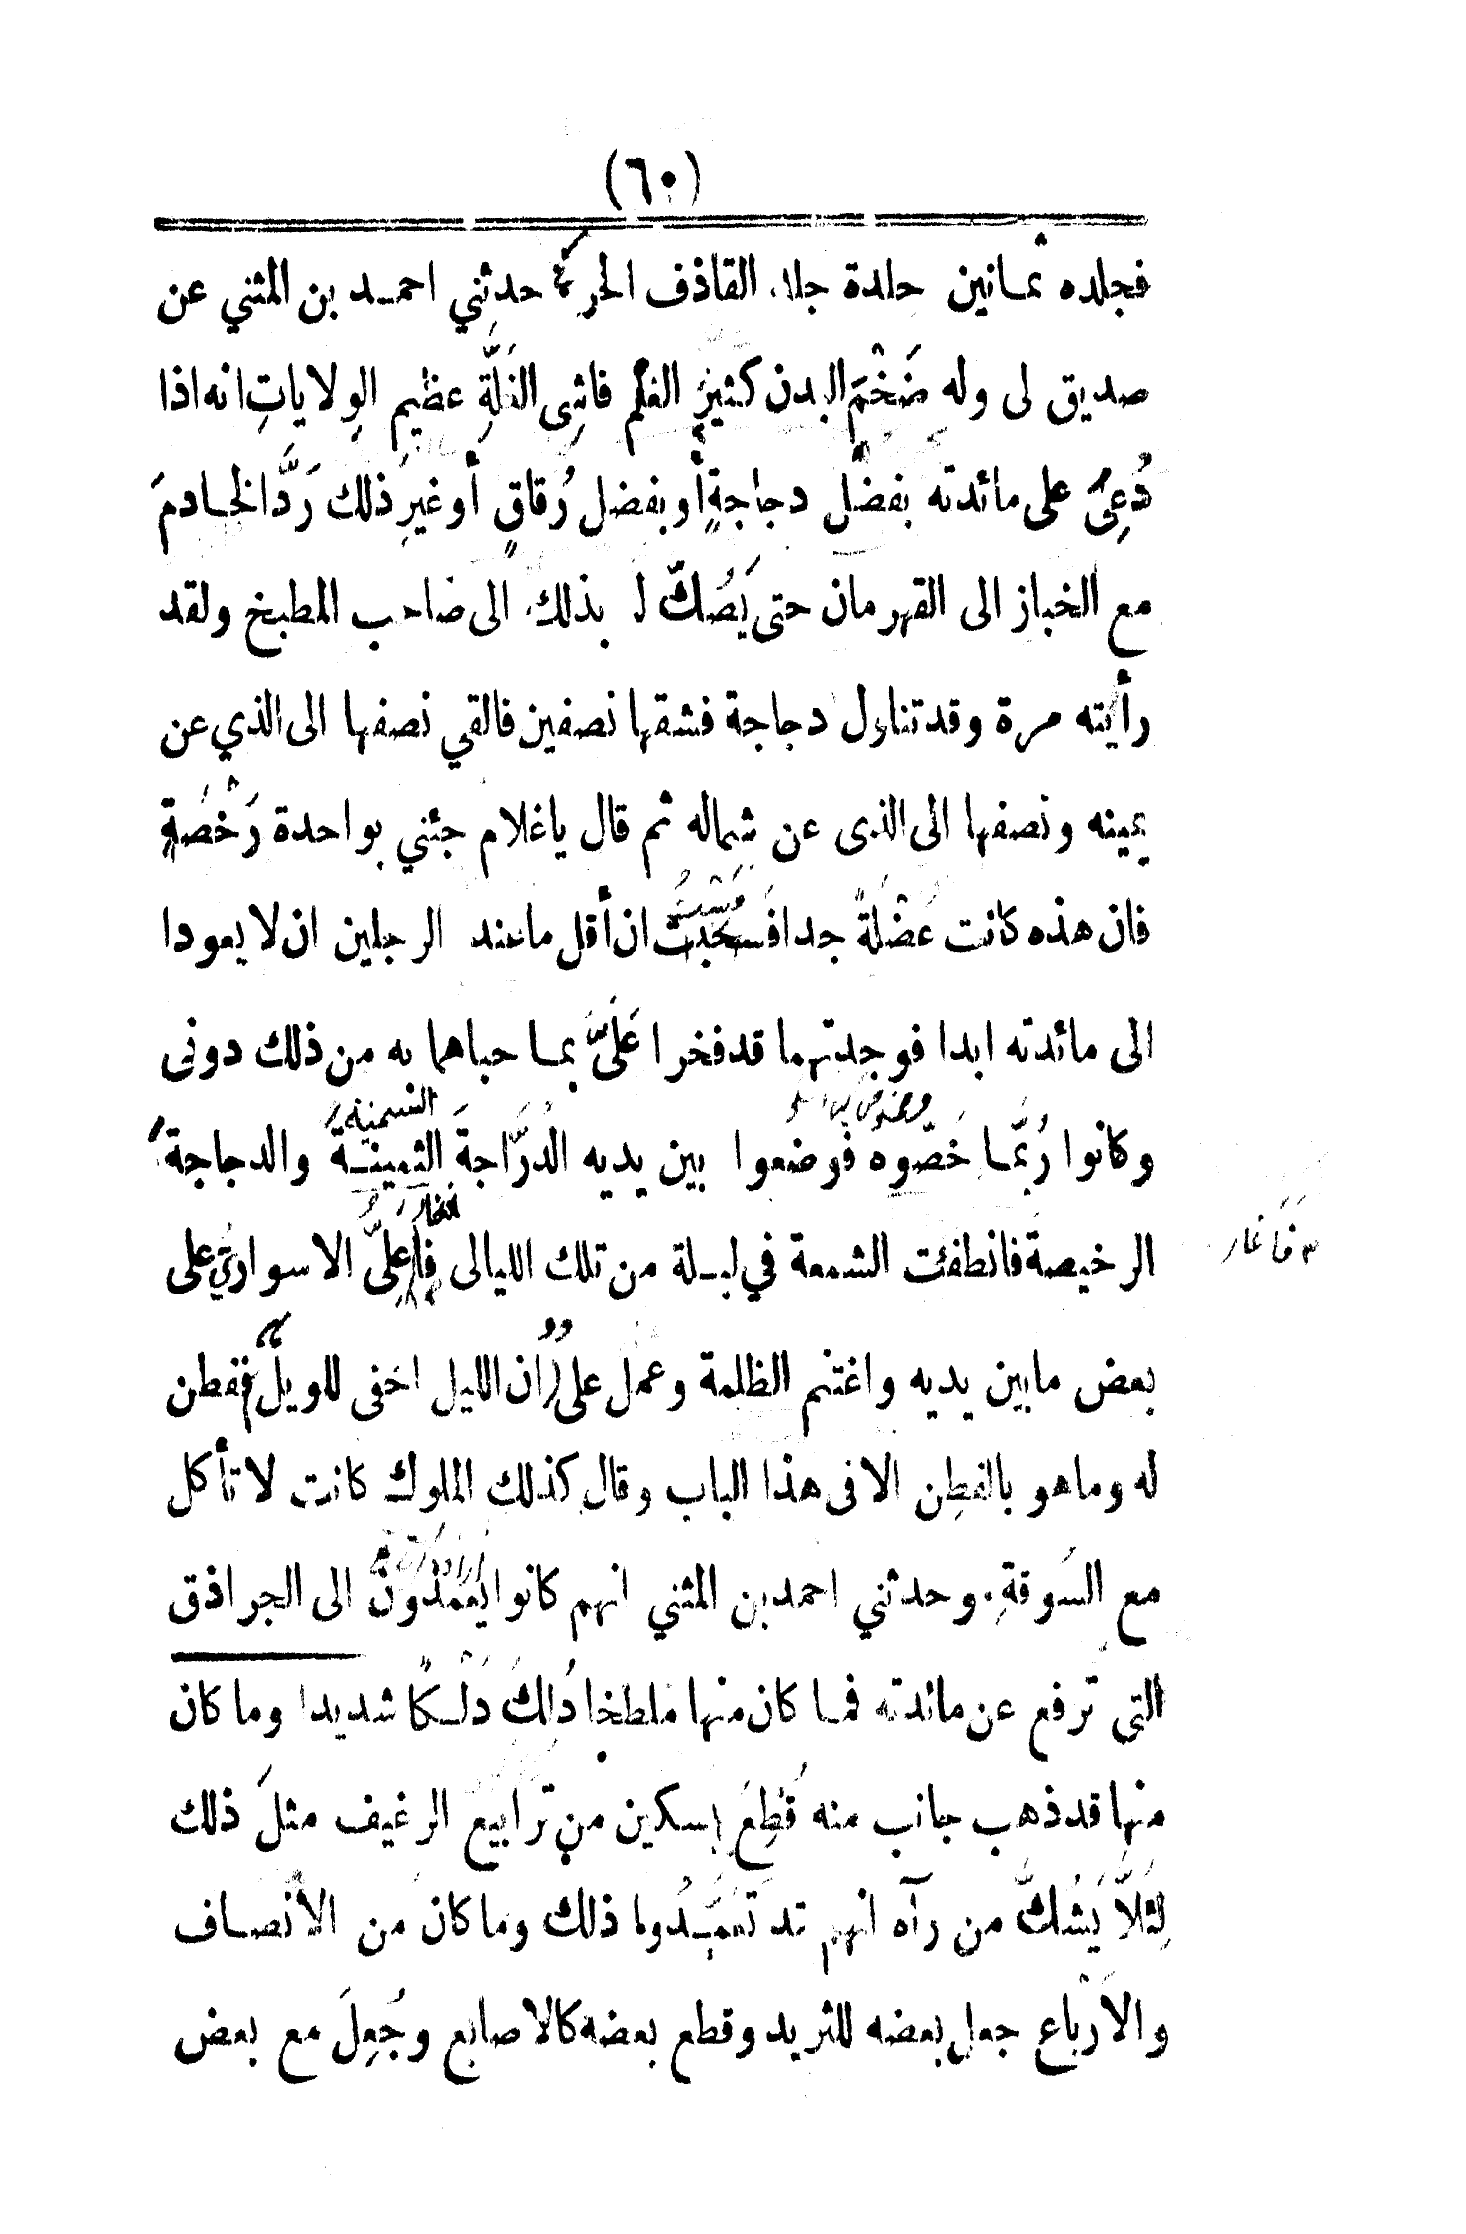 (٦٠)
فجلده ثمانين جلدة جلد القاذف الحر حدثني احمد بن المثني عن
صديق لى وله ضَخْمَ البدن كثير العلم فاشِى الغَلَّةِ عظيم الوِلاياتِ انه اذا
دُعِىَ على مائدته بفضل دجاجةٍ أو بفضل رُقاقٍ أو غيرِ ذلك رَدَّ الخادمَ
مع الخباز الى القهرمان حتى يَصُكَّ له بذلك الى صاحب المطبخ ولقد
رأيته مرة وقد تناول دجاجة فشقها نصفين فالقي نصفها الى الذي عن
يمينه ونصفها الى الذى عن شماله ثم قال ياغلام جئني بواحدة رَخْصَةٍ
فان هذه كانت عَضْلَةً جدا فسحبت ان أقل ماعند الرجلين ان لا يعودا
الى مائدته ابدا فوجدتهما قد فخرا عَلَىَّ بما حباهما به من ذلك دونى
السمينة
وكانوا رُبَّما خَصّوه فوضعوا بين يديه الدُّرَّاجةَ الثمينة والدجاجة
الرخيصة فانطفئت الشمعة في ليلة من تلك الليالى فاغار علىّ الاسوارى على
فأغار
بعض مابين يديه واغتنم الظلمة وعمل على ان الليل اخفى للويل ففطن
له وماهو بالفطِن الا فى هذا الباب وقال كذلك الملوك كانت لا تأكل
مع السَوقةِ. وحدثني احمد بن المثني انهم كانوا يعمدون الى الجرادق
التى ترفع عن مائدته فما كان منها ملطخا دُلِكَ دَلْكًا شديدا وما كان
منها قد ذهب جانب منه قُطِعَ بسكين من ترابيع الرغيف مثلَ ذلك
لِئلاَّ يَشُكَّ من رآه انهم قد تعمَّدوا ذلك وما كان من الأنصاف
والأرباع جعل بعضه للثريد وقطع بعضه كالاصابع وجُعِلَ مع بعض